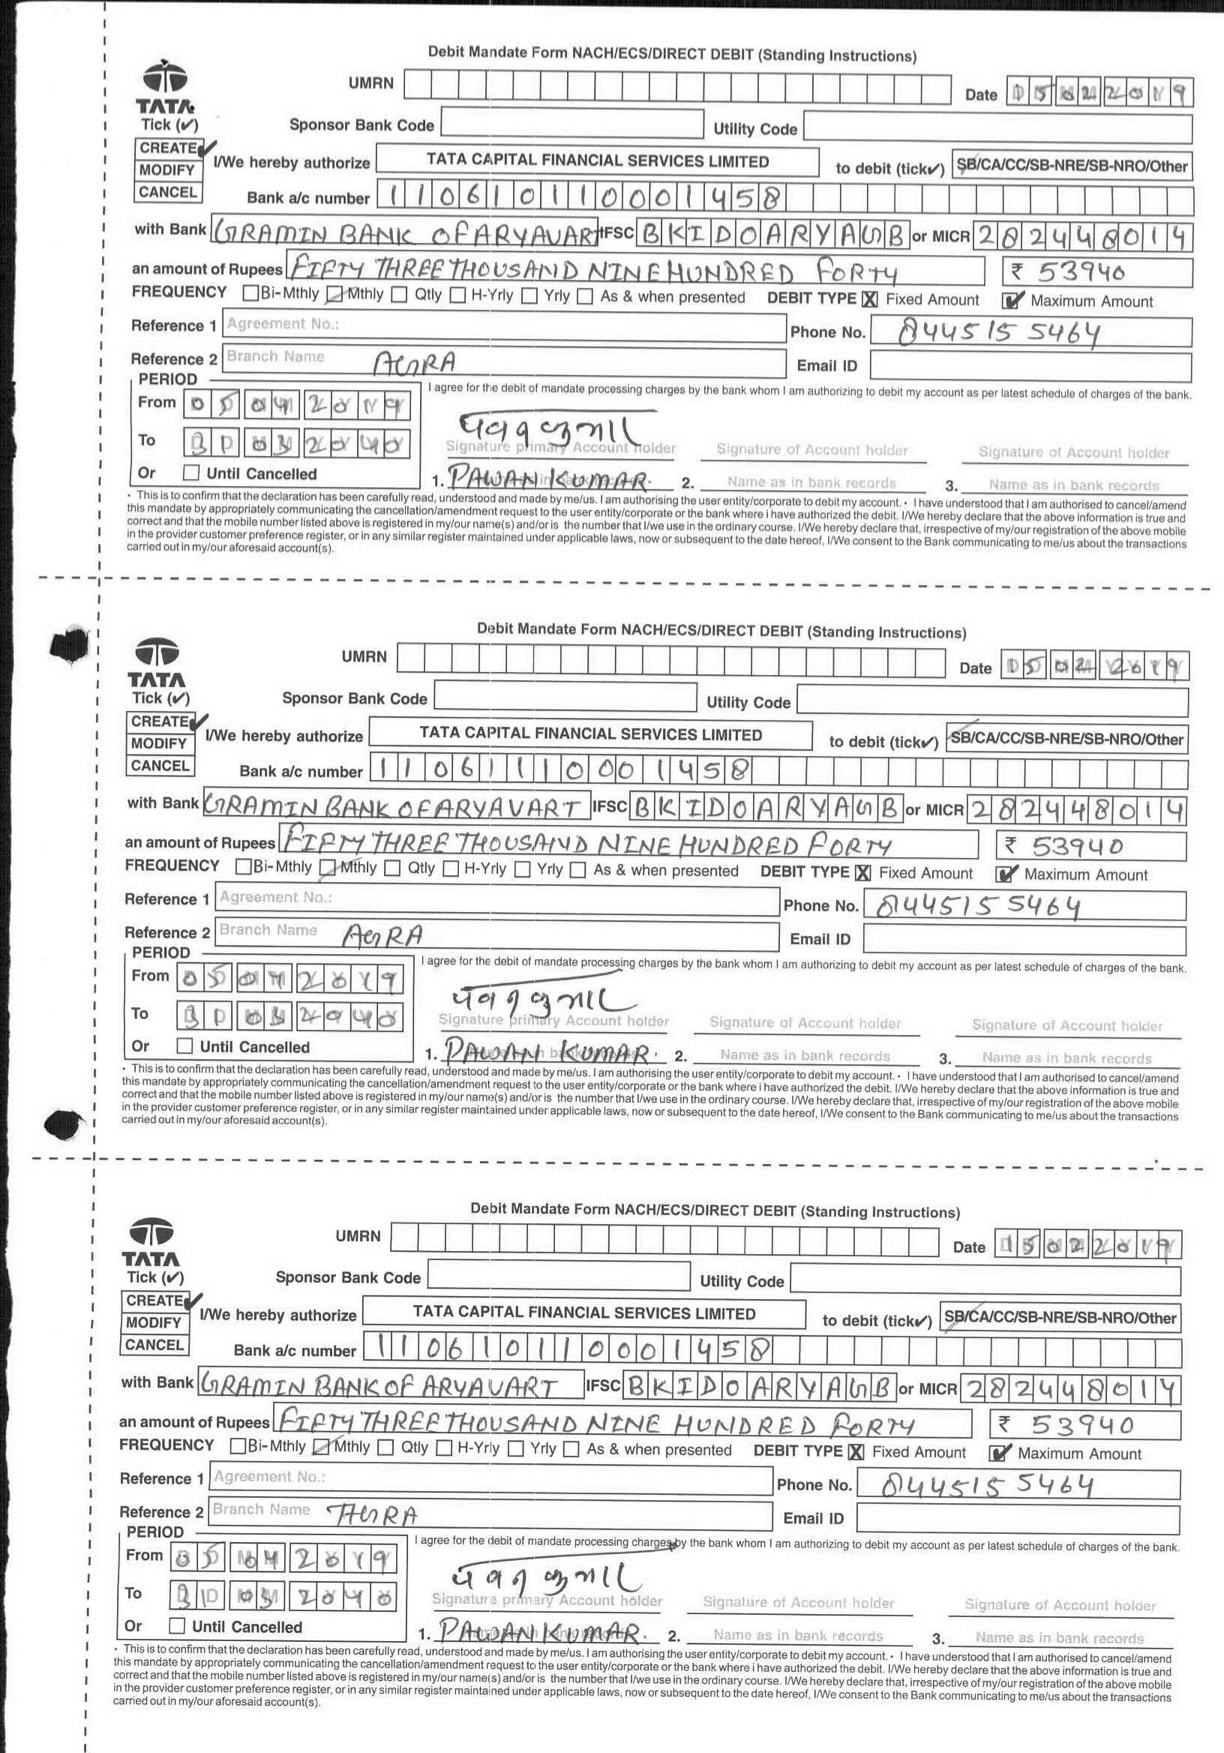 Debit Mandate Form NACH/ECS/DIRECT DEBIT (Standing Instructions)
UMRN Date 15022019
TATA
Tick (✓) Sponsor Bank Code Utility Code
CREATE✓
MODIFY
CANCEL
I/We hereby authorize TATA CAPITAL FINANCIAL SERVICES LIMITED to debit (tick✓) SB/CA/CC/SB-NRE/SB-NRO/Other
Bank a/c number 110610110001458
with Bank GRAMIN BANK OF ARYAVART IFSC BKID0ARYAGB or MICR 282448014
an amount of Rupees FIFTY THREE THOUSAND NINE HUNDRED FORTY ₹ 53940
FREQUENCY Bi-Mthly Mthly Qtly H-Yrly Yrly As & when presented DEBIT TYPE X Fixed Amount ✓ Maximum Amount
Reference 1 Agreement No.: Phone No. 8445155464
Reference 2 Branch Name AGRA Email ID
PERIOD
I agree for the debit of mandate processing charges by the bank whom I am authorizing to debit my account as per latest schedule of charges of the bank.
From 05042019
पवन कुमार
To 31032040
Signature primary Account holder Signature of Account holder Signature of Account holder
Or Until Cancelled
1. PAWAN KUMAR 2. Name as in bank records 3. Name as in bank records
• This is to confirm that the declaration has been carefully read, understood and made by me/us. I am authorising the user entity/corporate to debit my account. • I have understood that I am authorised to cancel/amend
this mandate by appropriately communicating the cancellation/amendment request to the user entity/corporate or the bank where i have authorized the debit. I/We hereby declare that the above information is true and
correct and that the mobile number listed above is registered in my/our name(s) and/or is the number that I/we use in the ordinary course. I/We hereby declare that, irrespective of my/our registration of the above mobile
in the provider customer preference register, or in any similar register maintained under applicable laws, now or subsequent to the date hereof, I/We consent to the Bank communicating to me/us about the transactions
carried out in my/our aforesaid account(s).
Debit Mandate Form NACH/ECS/DIRECT DEBIT (Standing Instructions)
UMRN Date 15022019
TATA
Tick (✓) Sponsor Bank Code Utility Code
CREATE✓
MODIFY
CANCEL
I/We hereby authorize TATA CAPITAL FINANCIAL SERVICES LIMITED to debit (tick✓) SB/CA/CC/SB-NRE/SB-NRO/Other
Bank a/c number 11061110001458
with Bank GRAMIN BANK OF ARYAVART IFSC BKID0ARYAGB or MICR 282448014
an amount of Rupees FIFTY THREE THOUSAND NINE HUNDRED FORTY ₹ 53940
FREQUENCY Bi-Mthly Mthly Qtly H-Yrly Yrly As & when presented DEBIT TYPE X Fixed Amount ✓ Maximum Amount
Reference 1 Agreement No.: Phone No. 8445155464
Reference 2 Branch Name AGRA Email ID
PERIOD
I agree for the debit of mandate processing charges by the bank whom I am authorizing to debit my account as per latest schedule of charges of the bank.
From 05042019
पवन कुमार
To 31032040
Signature primary Account holder Signature of Account holder Signature of Account holder
Or Until Cancelled
1. PAWAN KUMAR. 2. Name as in bank records 3. Name as in bank records
• This is to confirm that the declaration has been carefully read, understood and made by me/us. I am authorising the user entity/corporate to debit my account. • I have understood that I am authorised to cancel/amend
this mandate by appropriately communicating the cancellation/amendment request to the user entity/corporate or the bank where i have authorized the debit. I/We hereby declare that the above information is true and
correct and that the mobile number listed above is registered in my/our name(s) and/or is the number that I/we use in the ordinary course. I/We hereby declare that, irrespective of my/our registration of the above mobile
in the provider customer preference register, or in any similar register maintained under applicable laws, now or subsequent to the date hereof, I/We consent to the Bank communicating to me/us about the transactions
carried out in my/our aforesaid account(s).
Debit Mandate Form NACH/ECS/DIRECT DEBIT (Standing Instructions)
UMRN Date 15022019
TATA
Tick (✓) Sponsor Bank Code Utility Code
CREATE✓
MODIFY
CANCEL
I/We hereby authorize TATA CAPITAL FINANCIAL SERVICES LIMITED to debit (tick✓) SB/CA/CC/SB-NRE/SB-NRO/Other
Bank a/c number 110610110001458
with Bank GRAMIN BANK OF ARYAVART IFSC BKID0ARYAGB or MICR 282448014
an amount of Rupees FIFTY THREE THOUSAND NINE HUNDRED FORTY ₹ 53940
FREQUENCY Bi-Mthly Mthly Qtly H-Yrly Yrly As & when presented DEBIT TYPE X Fixed Amount ✓ Maximum Amount
Reference 1 Agreement No.: Phone No. 8445155464
Reference 2 Branch Name AGRA Email ID
PERIOD
I agree for the debit of mandate processing charges by the bank whom I am authorizing to debit my account as per latest schedule of charges of the bank.
From 05042019
पवन कुमार
To 31032040
Signature primary Account holder Signature of Account holder Signature of Account holder
Or Until Cancelled
1. PAWAN KUMAR. 2. Name as in bank records 3. Name as in bank records
• This is to confirm that the declaration has been carefully read, understood and made by me/us. I am authorising the user entity/corporate to debit my account. • I have understood that I am authorised to cancel/amend
this mandate by appropriately communicating the cancellation/amendment request to the user entity/corporate or the bank where i have authorized the debit. I/We hereby declare that the above information is true and
correct and that the mobile number listed above is registered in my/our name(s) and/or is the number that I/we use in the ordinary course. I/We hereby declare that, irrespective of my/our registration of the above mobile
in the provider customer preference register, or in any similar register maintained under applicable laws, now or subsequent to the date hereof, I/We consent to the Bank communicating to me/us about the transactions
carried out in my/our aforesaid account(s).